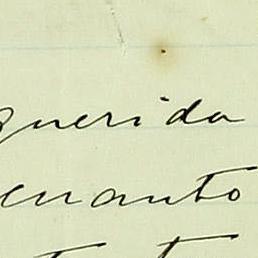 querida
cuanto